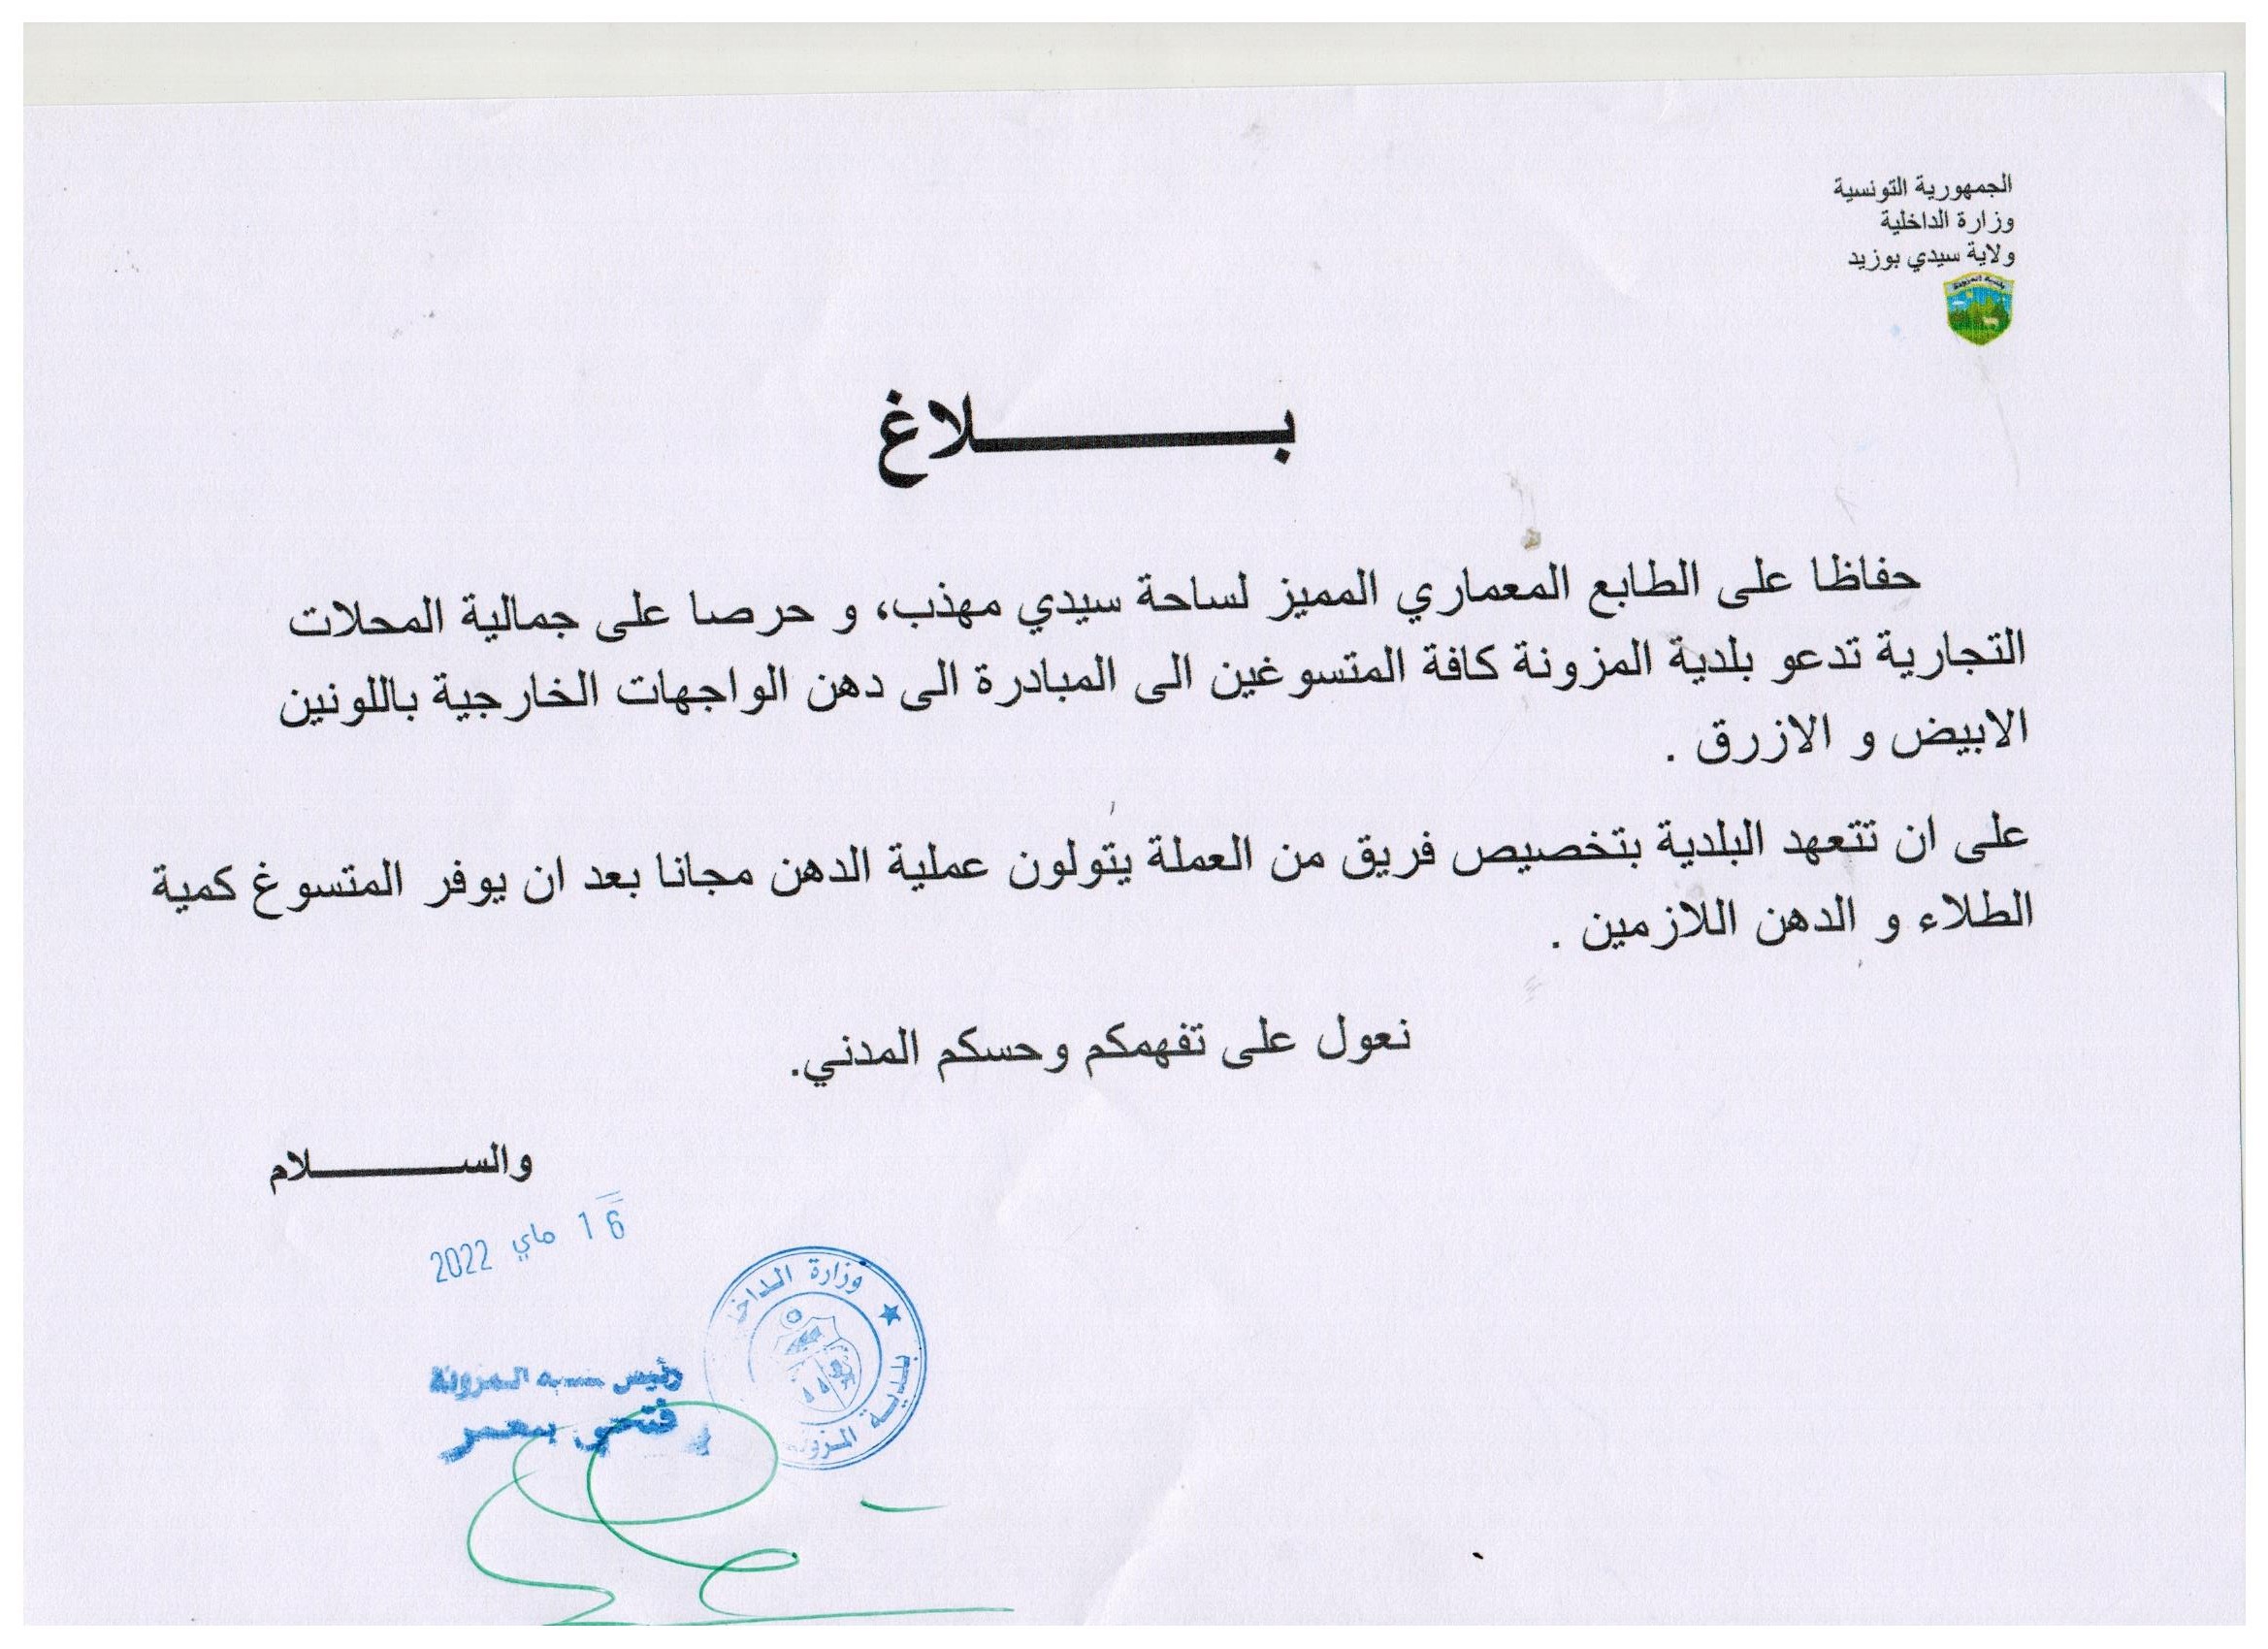 الجمهورية التونسية
وزارة الداخلية
ولاية سيدي بوزيد
بلدية المزونة
بـــــــــــلاغ
حفاظا على الطابع المعماري المميز لساحة سيدي مهذب، و حرصا على جمالية المحلات
التجارية تدعو بلدية المزونة كافة المتسوغين الى المبادرة الى دهن الواجهات الخارجية باللونين
الابيض و الازرق .
على ان تتعهد البلدية بتخصيص فريق من العملة يتولون عملية الدهن مجانا بعد ان يوفر المتسوغ كمية
الطلاء و الدهن اللازمين .
نعول على تفهمكم وحسكم المدني.
والســـــــــلام
16 ماي 2022
وزارة الداخ
بلدية المزونة
رئيس المزونة
فتحي